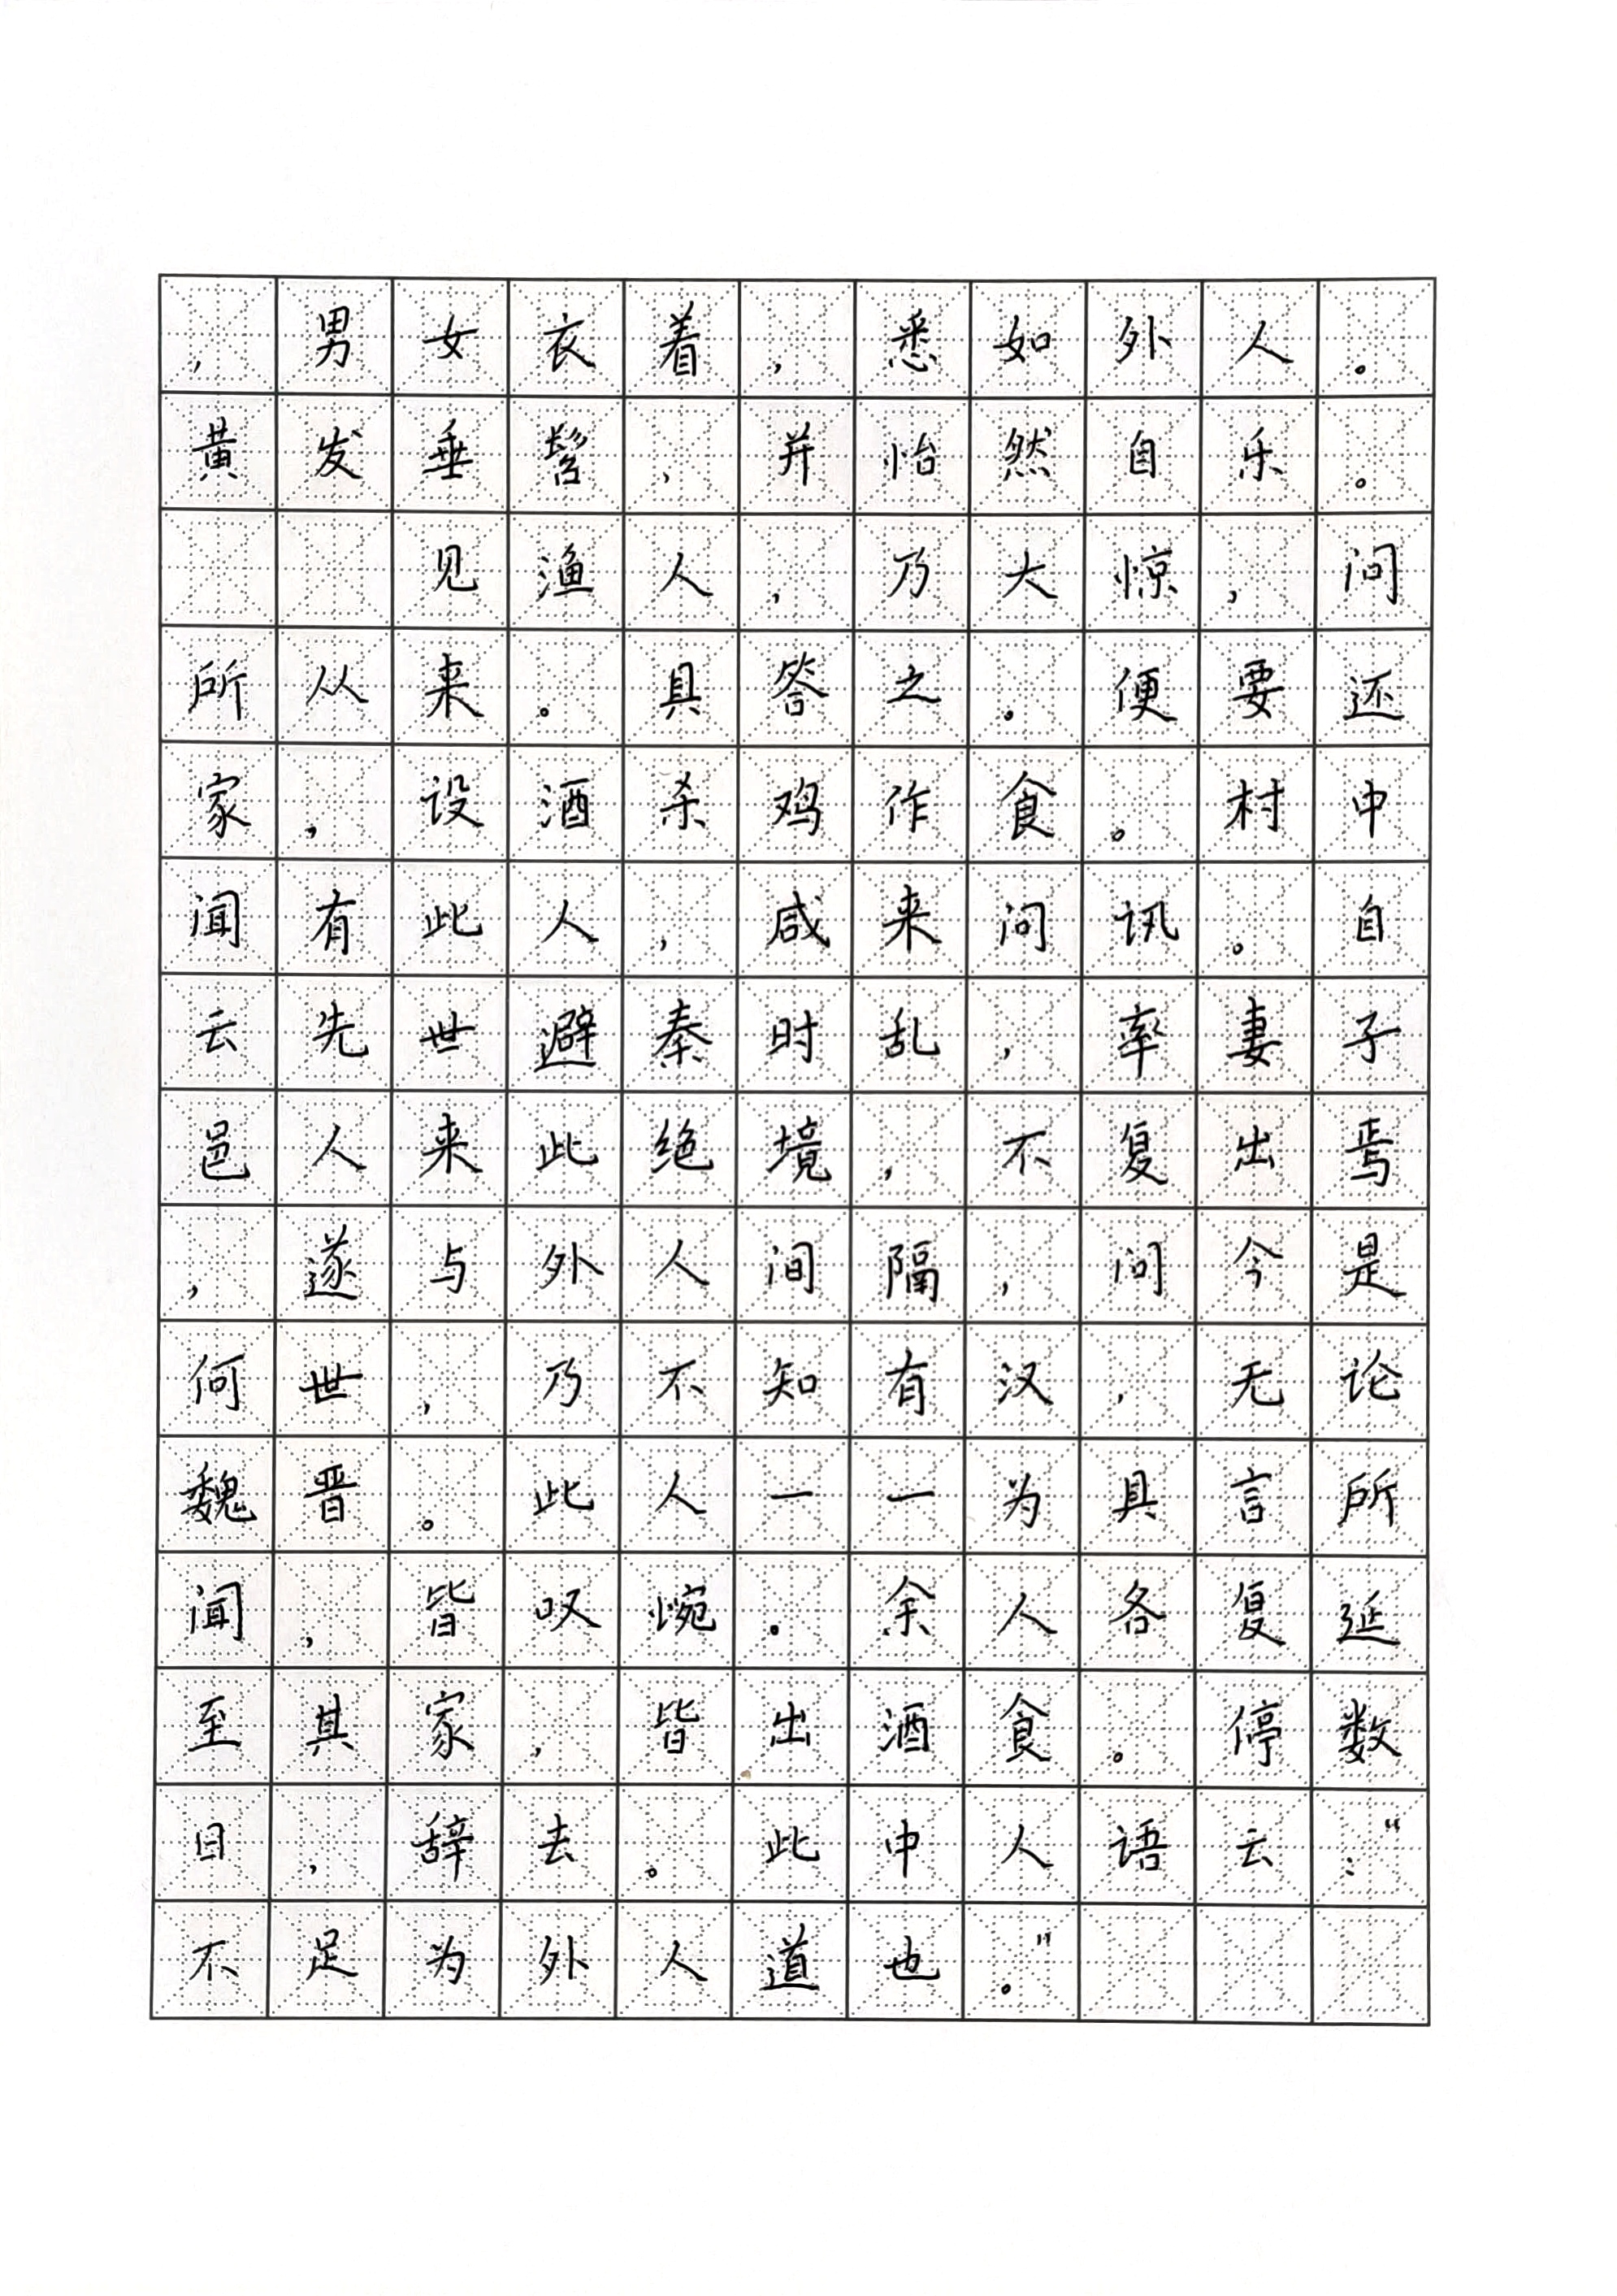 ，男女衣着，悉如外人。
黄发垂髫，并怡然自乐。
见渔人，乃大惊，问
所从来。具答之。便要还
家，设酒杀鸡作食。村中
闻有此人，咸来问讯。自
云先世避秦时乱，率妻子
邑人来此绝境，不复出焉
，遂与外人间隔，问今是
何世，乃不知有汉，无论
魏晋。此人一一为具言所
闻，皆叹惋。余人各复延
至其家，皆出酒食。停数
日，辞去。此中人语云：“
不足为外人道也。”